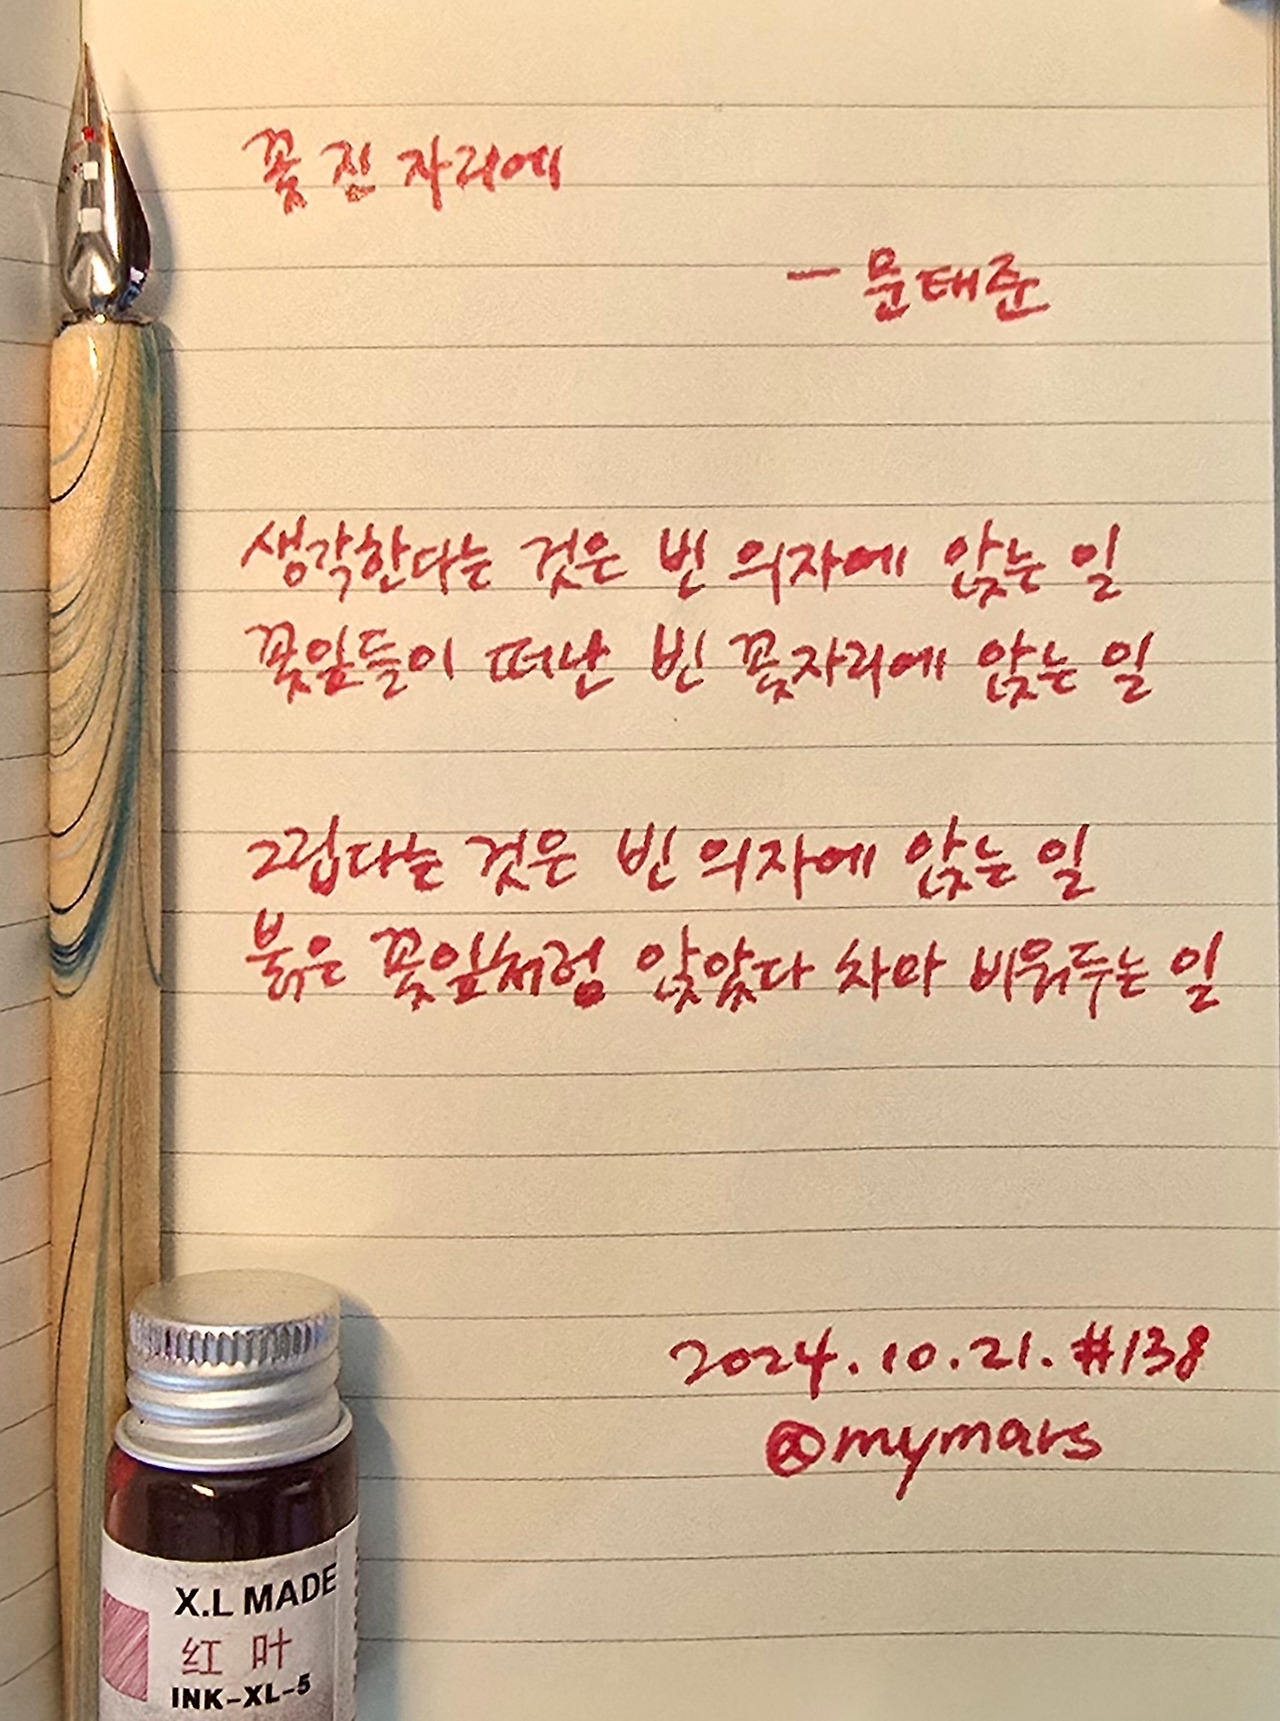 꽃 진 자리에
- 문태준
생각한다는 것은 빈 의자에 앉는 일
꽃잎들이 떠난 빈 꽃자리에 앉는 일
그립다는 것은 빈 의자에 앉는 일
붉은 꽃잎처럼 앉았다 차마 비워두는 일
2024.10.21. #138
@mymars
X.L MADE
红叶
INK-XL-5